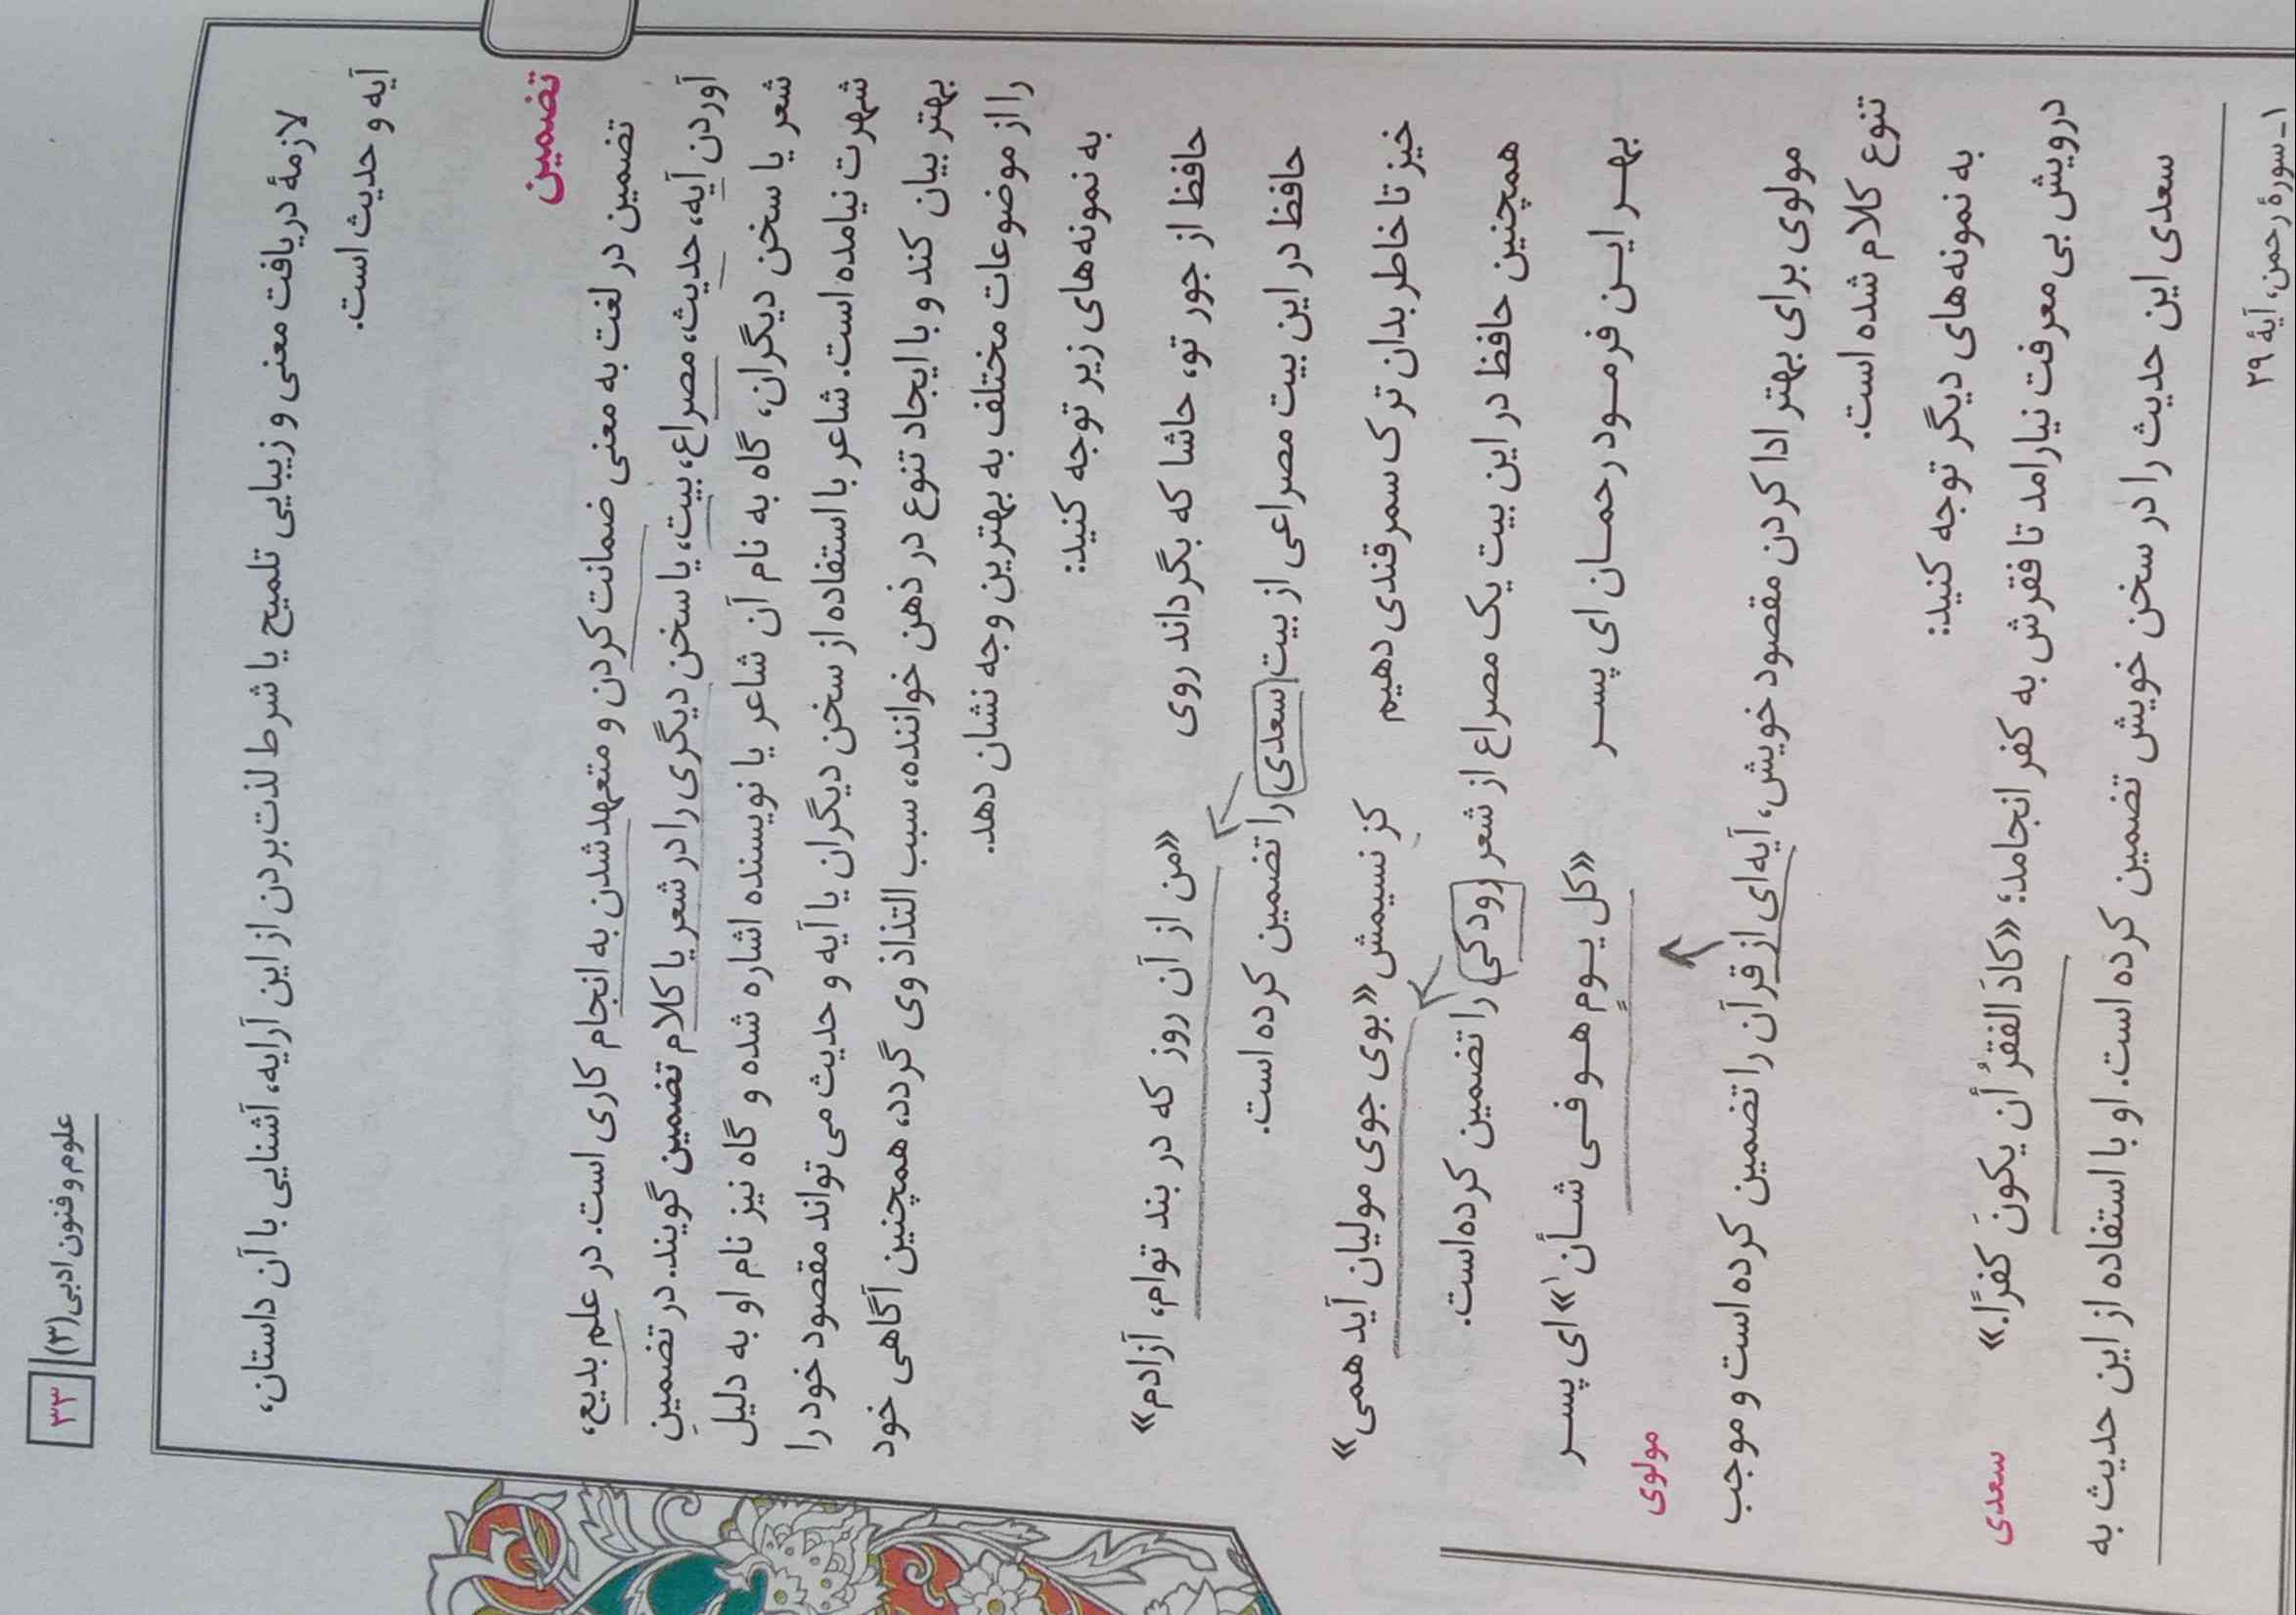 علوم و فنون ادبی (۳)
۳۳
لازمهٔ دریافت معنی و زیبایی تلمیح یا شرط لذت بردن از این آرایه، آشنایی با آن داستان،
آیه و حدیث است.
تضمین
تضمین در لغت به معنی ضمانت کردن و متعهد شدن به انجام کاری است. در علم بدیع،
آوردن آیه، حدیث، مصراع، بیت، یا سخن دیگری را در شعر یا کلام تضمین گویند. در تضمینِ
شعر یا سخن دیگران، گاه به نام آن شاعر یا نویسنده اشاره شده و گاه نیز نام او به دلیل
شهرت نیامده است. شاعر با استفاده از سخن دیگران یا آیه و حدیث می تواند مقصود خود را
بهتر بیان کند و با ایجاد تنوع در ذهن خواننده، سبب التذاذ وی گردد، همچنین آگاهی خود
را از موضوعات مختلف به بهترین وجه نشان دهد.
به نمونه های زیر توجه کنید:
حافظ از جور تو، حاشا که بگرداند روی «من از آن روز که در بند توام، آزادم»
حافظ در این بیت مصراعی از بیت سعدی را تضمین کرده است.
خیز تا خاطر بدان ترک سمرقندی دهیم کز نسیمش «بوی جوی مولیان آید همی»
همچنین حافظ در این بیت یک مصراع از شعر رودکی را تضمین کرده است.
بهر ایـن فرمـود رحمـان ای پسـر «کل یـومٍ هـو فـی شـأن۱» ای پسـر
مولوی
مولوی برای بهتر ادا کردن مقصود خویش، آیه ای از قرآن را تضمین کرده است و موجب
تنوع کلام شده است.
به نمونه های دیگر توجه کنید:
درویش بی معرفت نیارامد تا فقرش به کفر انجامد؛ «کادَ الفقرُ أن یکونَ کفرًا.» سعدی
سعدی این حدیث را در سخن خویش تضمین کرده است. او با استفاده از این حدیث به
۱ـ سورهٔ رحمن، آیهٔ ۲۹